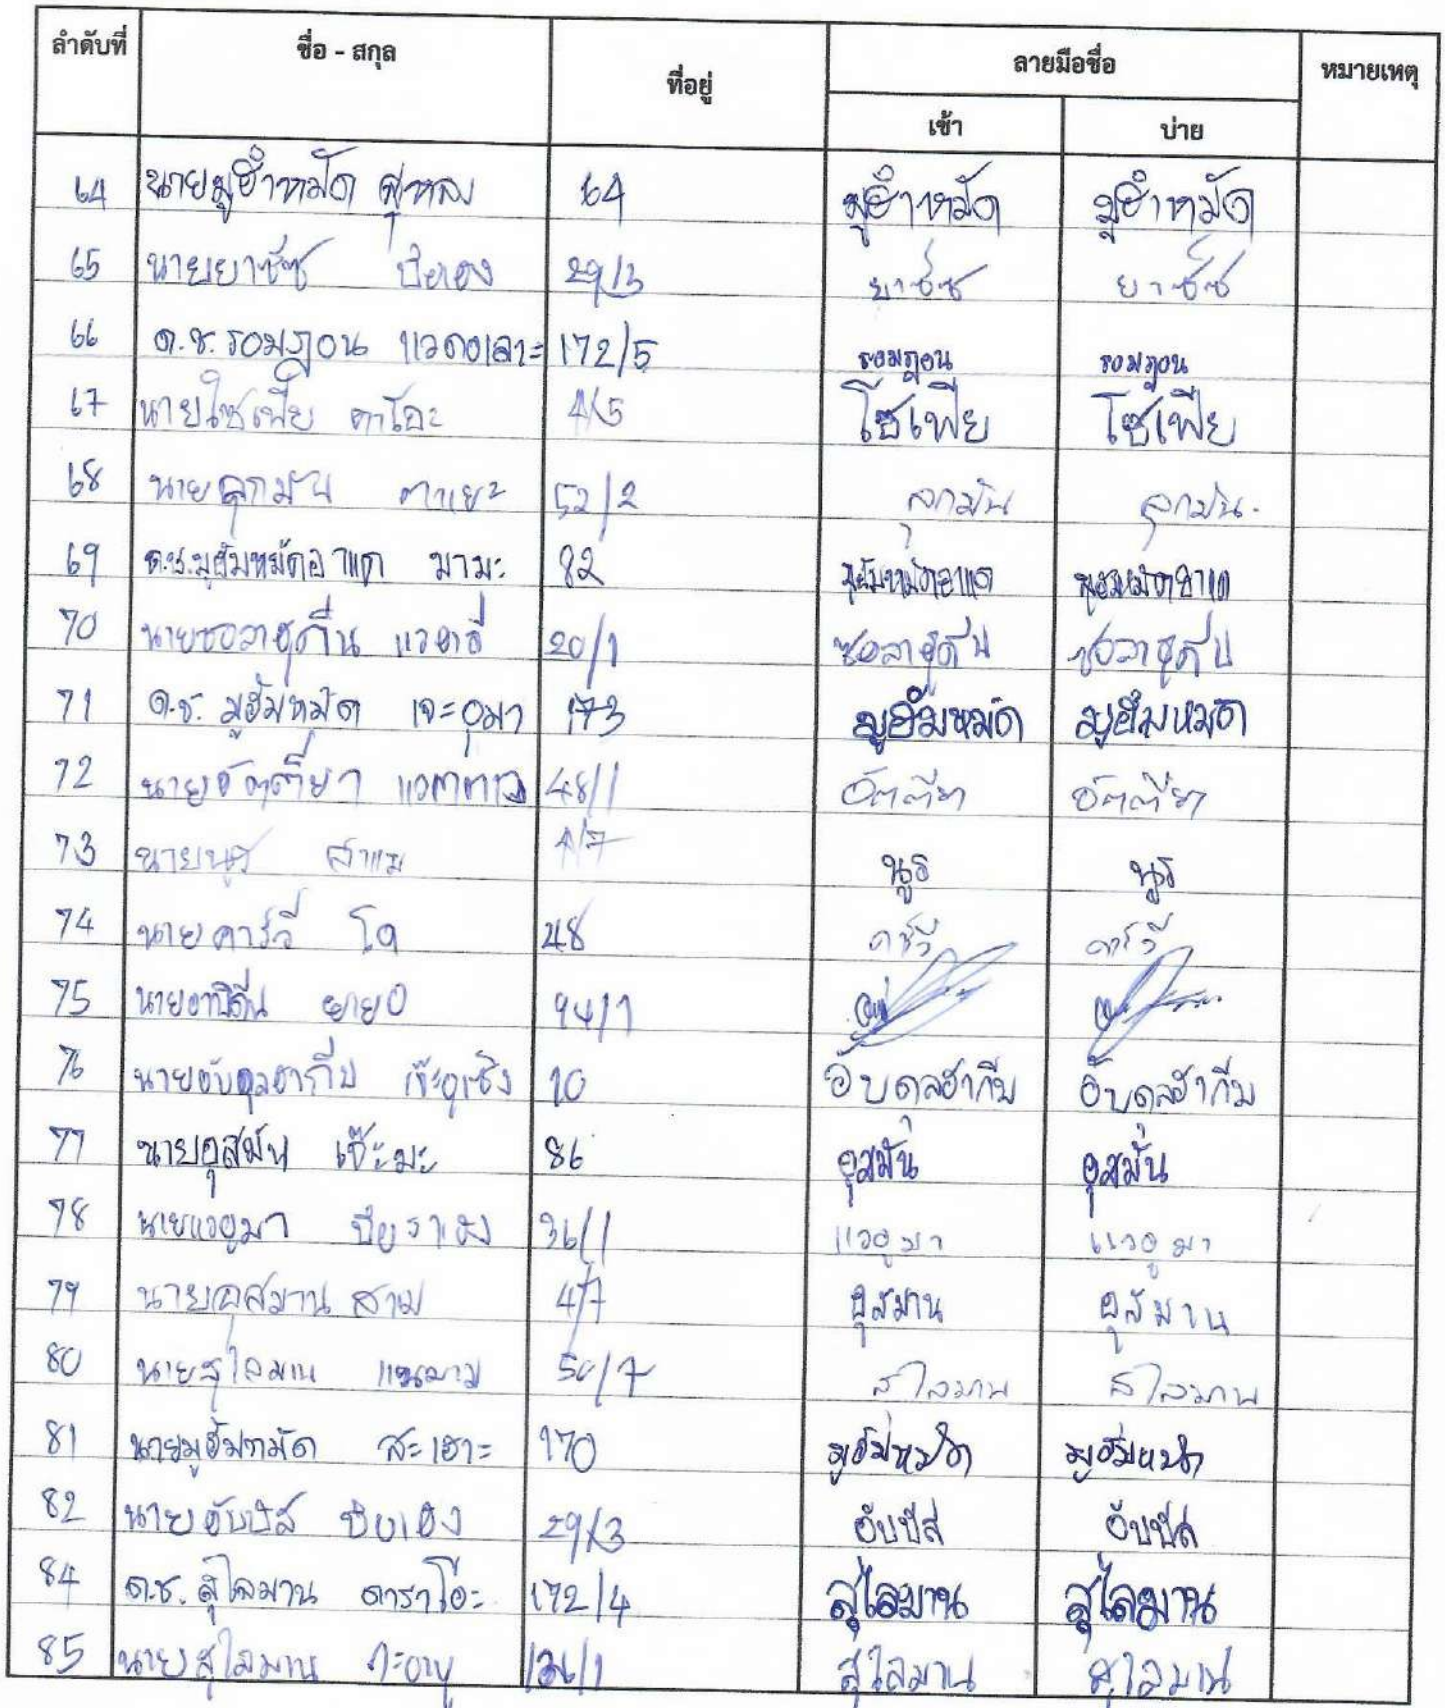 ลำดับที่ ชื่อ - สกุล ที่อยู่ ลายมือชื่อ หมายเหตุ
เช้า บ่าย
64 นายมูฮำหมัด สุหลง 64 มูฮำหมัด มูฮำหมัด
65 นายยาซัซ 29/3 ยาซัซ ยาซัซ
66 ด.ช.รอมฎอน แวดอเลาะ 172/5 รอมฎอน รอมฎอน
67 นายโซเฟีย 4/5 โซเฟีย โซเฟีย
68 นายลุกมัน 52/2 ลุกมัน ลุกมัน
69 ด.ช.มูฮัมหมัดอาแด มามะ 82 มูฮัมหมัดอาแด มูฮัมหมัดอาแด
70 นายซอลาฮุดีน แวอาลี 20/1 ซอลาฮุดีน ซอลาฮุดีน
71 ด.ช. มูฮัมหมัด เจะอุมา 173 มูฮัมหมัด มูฮัมหมัด
72 นายอัตตียา 48/1 อัตตียา อัตตียา
73 นายนูร สาแม 4/7 นูร นูร
74 นายคาร์วี โด 48 คาร์วี คาร์วี
75 94/1
76 นายอับดุลฮากีม 10 อับดุลฮากีม อับดุลฮากีม
77 นายอุสมัน เจ๊ะมะ 86 อุสมัน อุสมัน
78 นายแวอูมา 36/1 แวอูมา แวอูมา
79 นายอุสมาน สาแม 4/7 อุสมาน อุสมาน
80 นายสุไลมาน 50/7 สุไลมาน สุไลมาน
81 นายมูฮัมหมัด สะเฮาะ 170 มูฮัมหมัด มูฮัมหมัด
82 นายอับบัส 29/3 อับบัส อับบัส
84 ด.ช. สุไลมาน ดาราโอะ 172/4 สุไลมาน สุไลมาน
85 นายสุไลมาน 136/1 สุไลมาน สุไลมาน